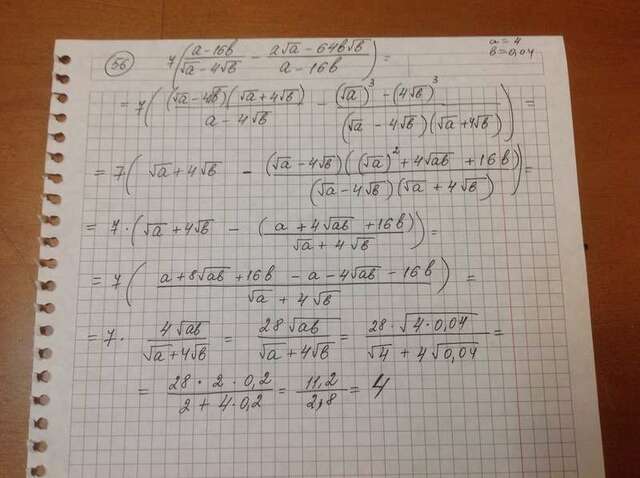 56 7((a-16b)/(√a-4√b) - (a√a-64b√b)/(a-16b)) = a=4
b=0,04
= 7(((√a-4b)(√a+4√b))/(a-4√b) - ((√a)³-(4√b)³)/((√a-4√b)(√a+4√b))) =
= 7(√a+4√b - ((√a-4√b)((√a)²+4√ab+16b))/((√a-4√b)(√a+4√b))) =
= 7·(√a+4√b - (a+4√ab+16b)/(√a+4√b)) =
= 7((a+8√ab+16b-a-4√ab-16b)/(√a+4√b)) =
= 7·(4√ab)/(√a+4√b) = (28√ab)/(√a+4√b) = (28·√4·0,04)/(√4+4√0,04) =
= (28·2·0,2)/(2+4·0,2) = 11,2/2,8 = 4